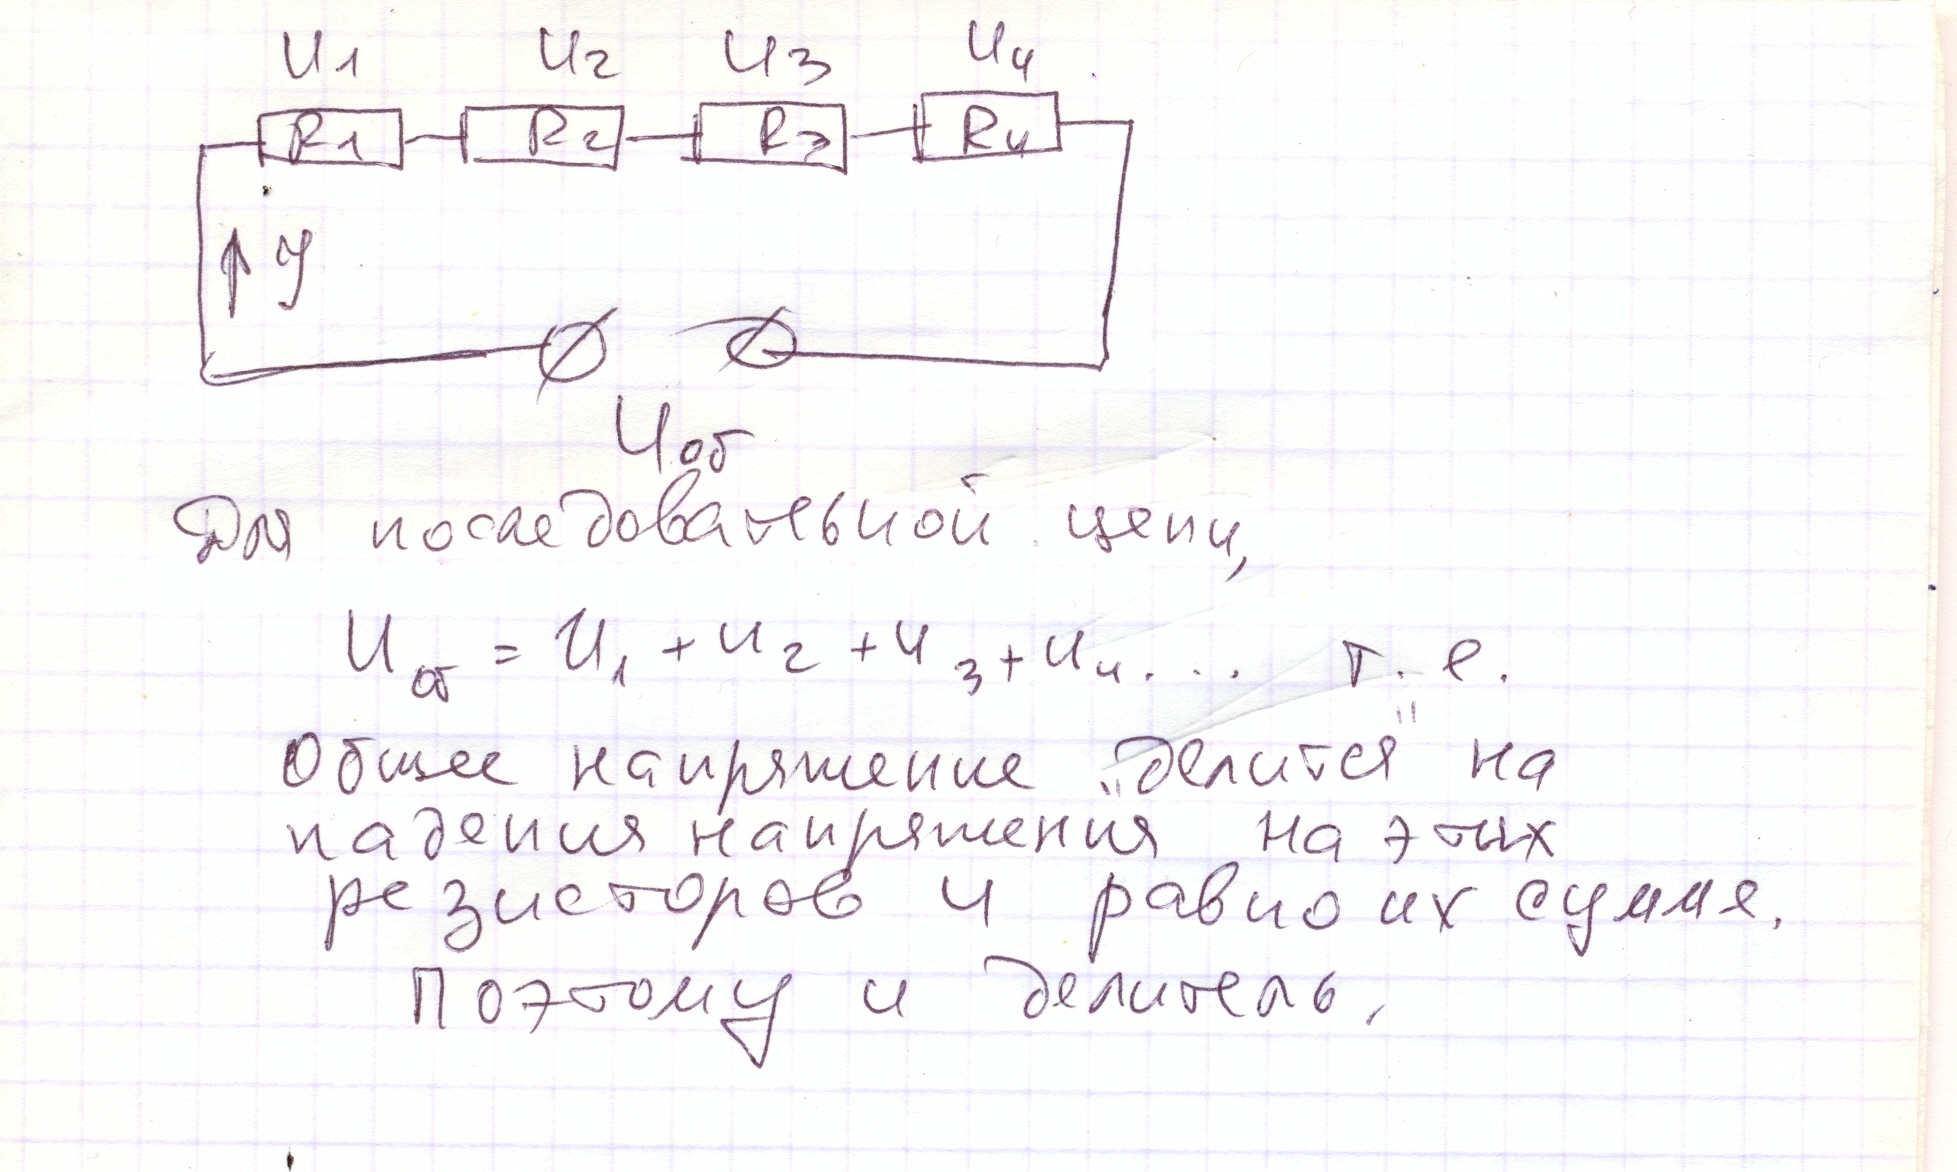 U1 U2 U3 U4
R1 R2 R3 R4
↑ J
Uоб
Для последовательной цепи,
Uоб = U1 + U2 + U3 + U4 . . . т. е.
Общее напряжение "делится" на
падения напряжения на этих
резисторов и равно их сумме.
Поэтому и делитель.